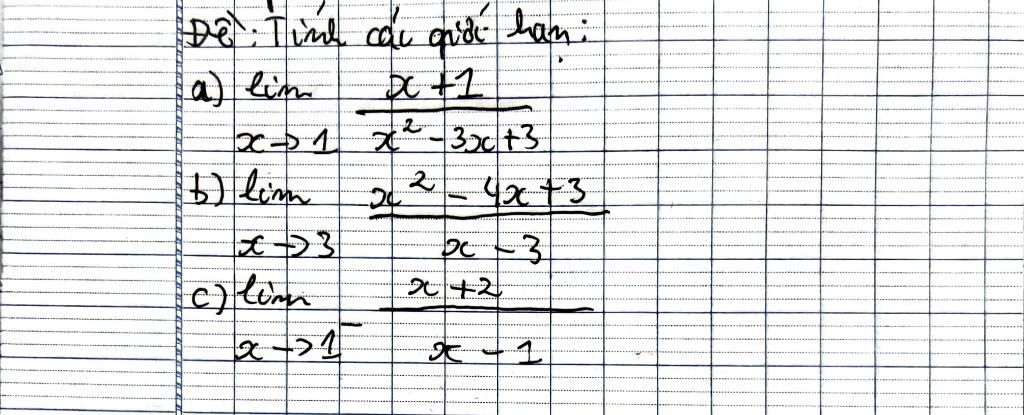 Đề: Tính các giới hạn:
a) lim x + 1
x → 1 x² - 3x + 3
b) lim x² - 4x + 3
x → 3 x - 3
c) lim x + 2
x → 1⁻ x - 1